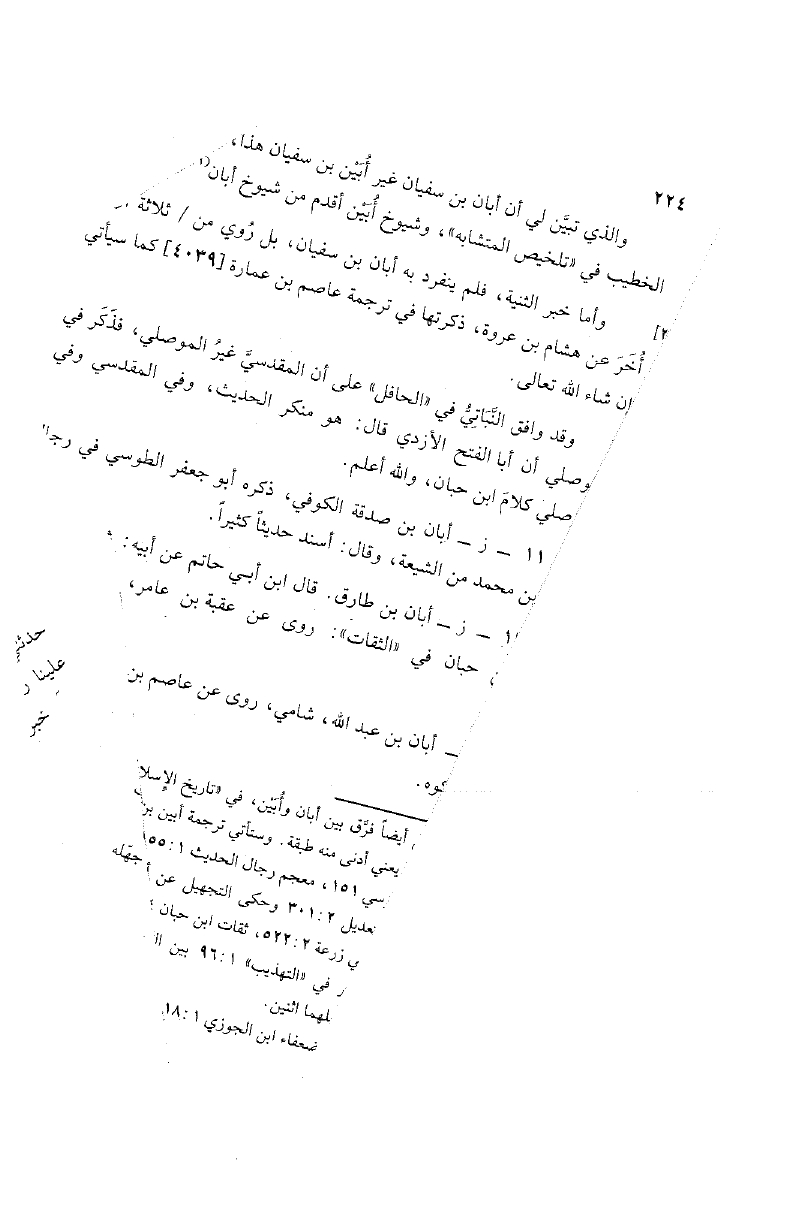 ٢٢٤
والذي تبيَّن لي أن أبان بن سفيان غير أُبَيْن بن سفيان هذا،
الخطيب في «تلخيص المتشابه»، وشيوخ أُبَيْن أقدم من شيوخ أبان(١
وأما خبر الثنية، فلم ينفرد به أبان بن سفيان، بل رُوي من / ثلاثة
٢]
أُخَرَ عن هشام بن عروة، ذكرتها في ترجمة عاصم بن عمارة [٤٠٣٩] كما سيأتي
إن شاء الله تعالى.
وقد وافق النَّبَاتِيُّ في «الحافل» على أن المقدسيَّ غيرُ الموصلي، فذَكَر في
وصلي أن أبا الفتح الأزدي قال: هو منكر الحديث، وفي المقدسي وفي
صلي كلامَ ابن حبان، والله أعلم.
١١ ـ ز ـ أبان بن صدقة الكوفي، ذكره أبو جعفر الطوسي في رجا
بن محمد من الشيعة، وقال: أسند حديثاً كثيراً.
١ ـ ز ـ أبان بن طارق. قال ابن أبي حاتم عن أبيه:
حبان في «الثقات»: روى عن عقبة بن عامر،
ـ أبان بن عبد الله، شامي، روى عن عاصم بن
كوه.
أيضاً فرَّق بين أبان وأُبَيْن، في «تاريخ الإسلا
يعني أدنى منه طبقة. وستأتي ترجمة أبين بن
سي ١٥١، معجم رجال الحديث ١:١٥٥
تعديل ٢:٣٠١ وحكى التجهيل عن أ جهّله
ي زرعة ٢:٥٢٢، ثقات ابن حبان
ر في «التهذيب» ١:٩٦ بين ا
لهما اثنين.
ضعفاء ابن الجوزي ١:١٨
حدثني
علينا
خبر